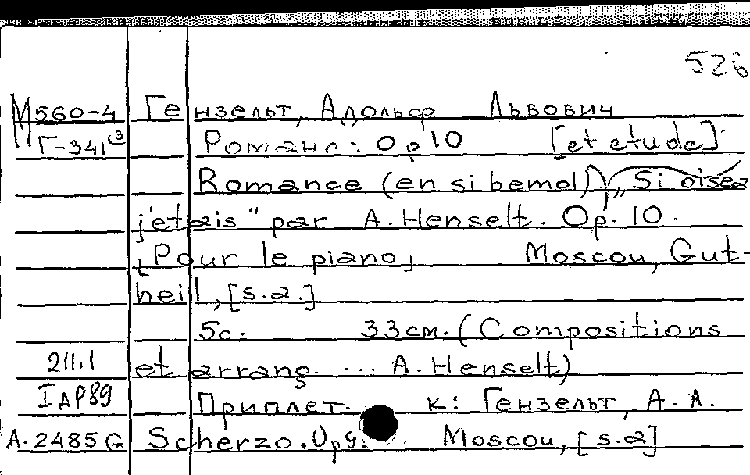 526
М560-4 Гензельт, Адольф Львович
Г-341(3 Романс: Op 10 [et etude]
Romance (en si bemol), "Si oiseau
j'etais" par A. Henselt. Op. 10.
[Pour le piano] Moscou, Gut-
heil, [s.a.]
5c. 33 см. (Compositions
211.1 et arrang ... A. Henselt)
I AP89 Приплет. к: Гензельт, А. Л.
A.2485G Scherzo. Op 9. Moscou, [s.a]